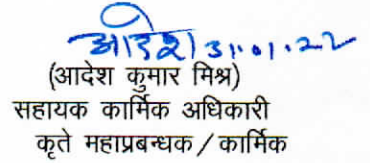 आदेश 31.01.22
(आदेश कुमार मिश्र)
सहायक कार्मिक अधिकारी
कृते महाप्रबन्धक / कार्मिक